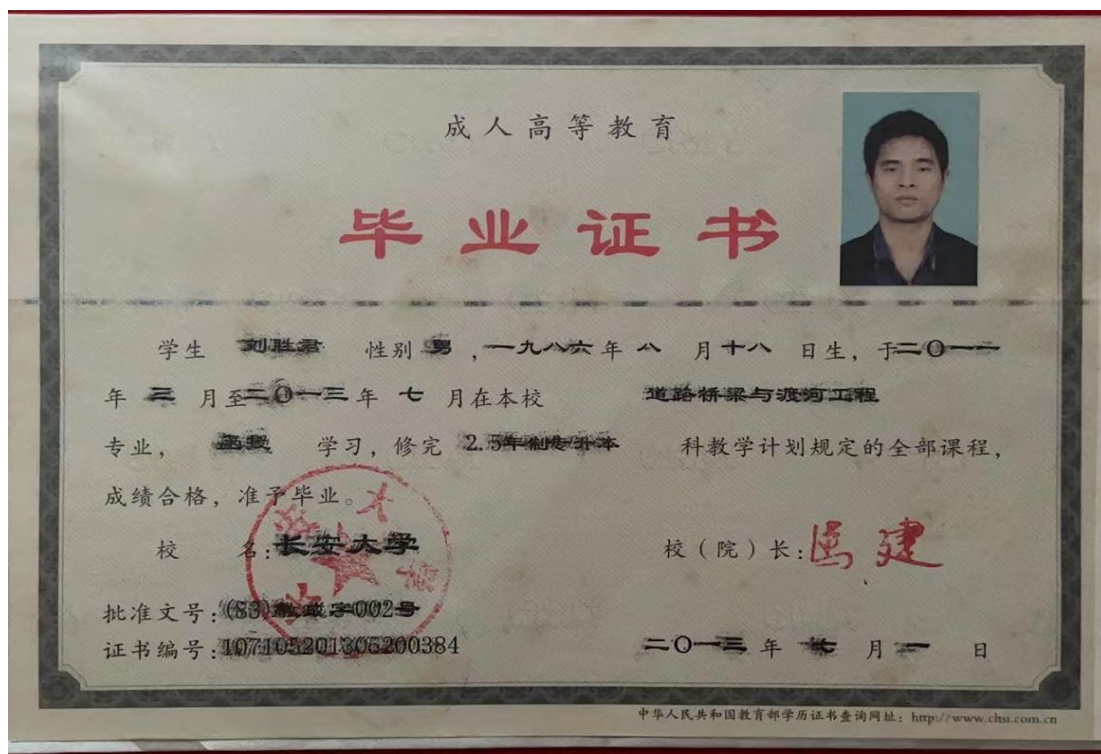 成人高等教育
毕业证书
学生 刘胜君 性别 男 ,一九八六年 八 月十八 日生, 于二〇一一
年 三 月至二〇一三年 七 月在本校 道路桥梁与渡河工程
专业, 函授 学习, 修完 2.5年制专升本 科教学计划规定的全部课程,
成绩合格, 准予毕业。
校 名:长安大学 校(院)长:
批准文号:(83)教成字002号
证书编号:107105201305200384 二〇一三年 七 月 一 日
中华人民共和国教育部学历证书查询网址: http://www.chsi.com.cn